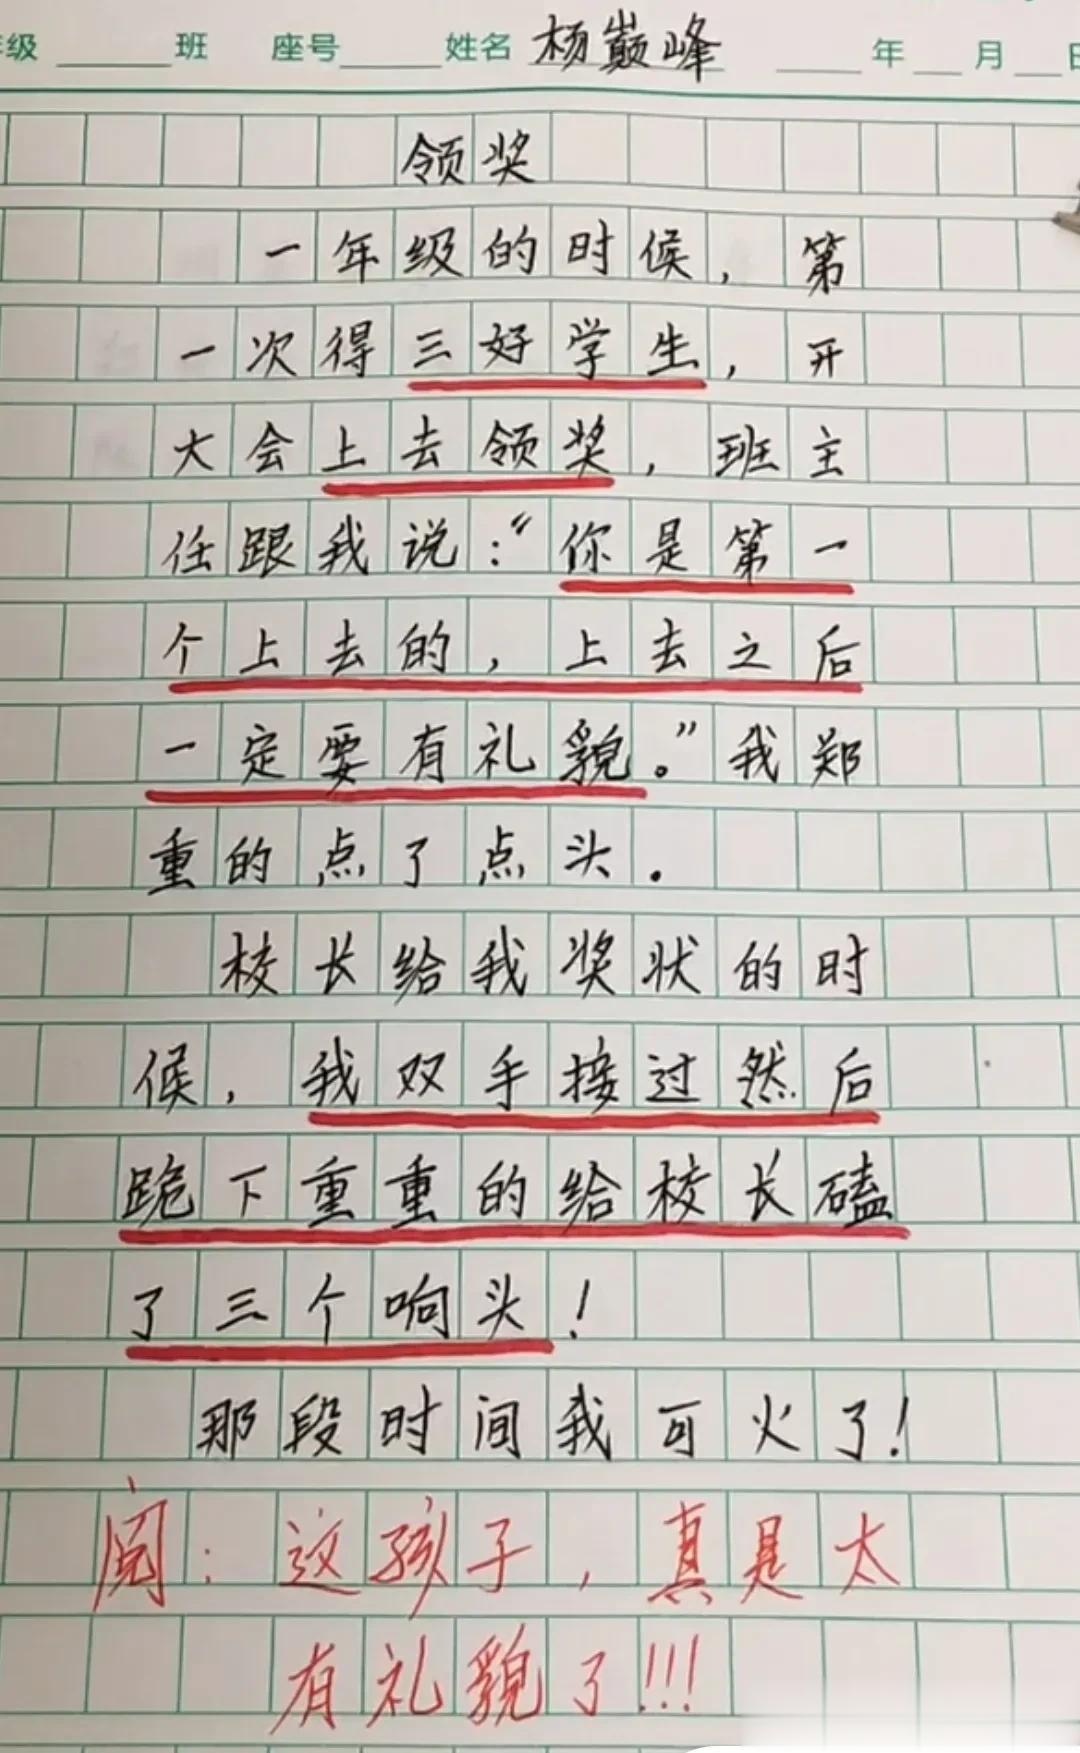 级 班 座号 姓名 杨巅峰 年 月 日
领奖
一年级的时候，第
一次得三好学生，开
大会上去领奖，班主
任跟我说：“你是第一
个上去的，上去之后
一定要有礼貌。”我郑
重的点了点头．
校长给我奖状的时
候，我双手接过然后
跪下重重的给校长磕
了三个响头！
那段时间我可火了！
阅：这孩子，真是太
有礼貌了!!!